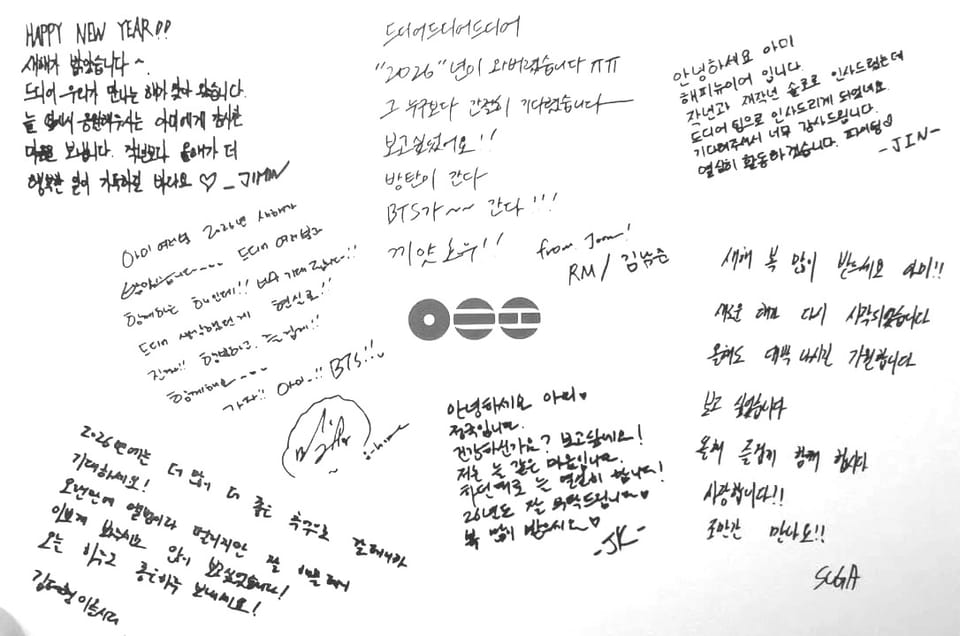 HAPPY NEW YEAR!!
새해가 밝았습니다~
드디어 우리가 만나는 해가 찾아 왔습니다.
늘 옆에서 응원해주시는 아미에게 감사한
마음 보냅니다. 작년보다 올해가 더
행복한 일이 가득하길 바라요 ♡ - JIMIN
드디어드디어드디어
"2026"년이 와버렸습니다 ㅠㅠ
그 누구보다 간절히 기다렸습니다
보고싶었어요!!
방탄이 간다
BTS가~~ 간다!!!
끼얏호우!!
from Joon!
RM/김남준
안녕하세요 아미
해피뉴이어 입니다.
작년과 재작년 솔로로 인사드렸는데
드디어 팀으로 인사드리게 되었네요.
기다려주셔서 너무 감사드립니다.
열심히 활동하겠습니다. 파이팅♡
-JIN-
아미 여러분 2026년 새해가
밝았습니다.... 드디어 여러분과
함께하는 해인데!! 기대됩니다!!
드디어 생각했던게 현실로!!
진짜!! 행복하고, 즐겁게!!
함께해요~...
가자!! 아미..!! BTS!!
j-hope
새해 복 많이 받으세요 아미!!
새로운 해로 다시 시작되었습니다
올해도 대박 나시길 기원합니다
보고 싶었습니다
올해 즐겁게 함께 합시다
사랑합니다!!
조만간 만나요!!
SUGA
안녕하세요 아미♥
정국입니다.
건강하신가요? 보고싶네요!
저는 늘 같은 마음입니다.
하던대로 늘 열심히 합니다!
26년도 잘 부탁드립니다♥
복 많이 받으시오♡
-JK-
2026년에는 더 많이 더 좋은 추억으로
기대하세요!
오랜만에 앨범이라 떨리지만 잘
이쁘게 봐주시요 많이 보고싶었습니다!
오늘 하루도 좋은하루 보내세요!
김태형